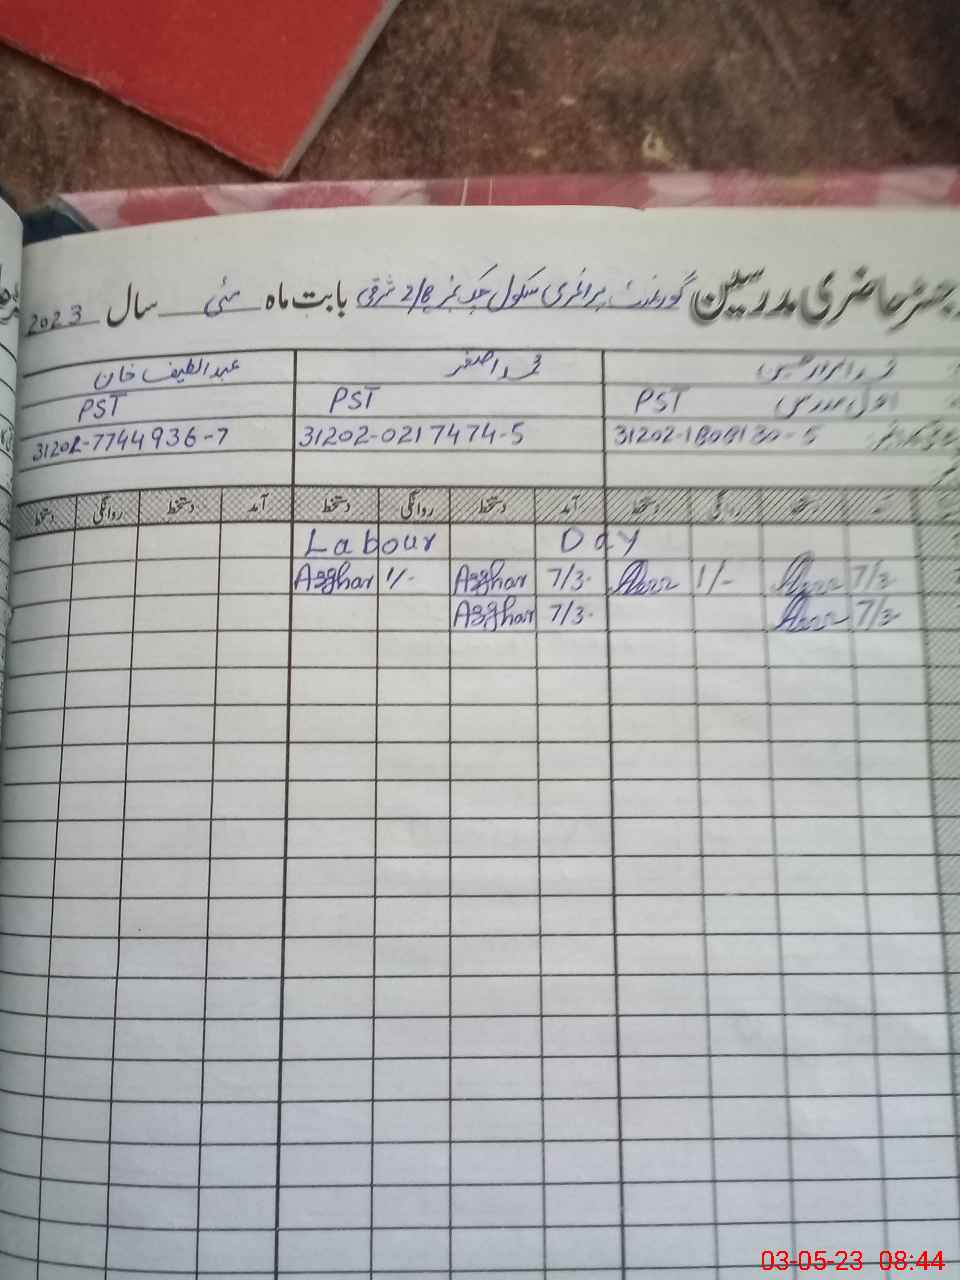 رجسٹر حاضری مدرسین گورنمنٹ پرائمری سکول چک نمبر 2/8 شرقی بابت ماہ مئی سال 2023
محمد اصغر عبدالطیف خان
PST PST PST
31202-0217474-5 31202-7744936-7
دستخط روانگی دستخط آمد دستخط روانگی دستخط آمد دستخط روانگی دستخط
Labour Day
7/3- 1/- 7/3- Azghar 1/- Azghar
7/3- 7/3- Azghar
03-05-23 08:44